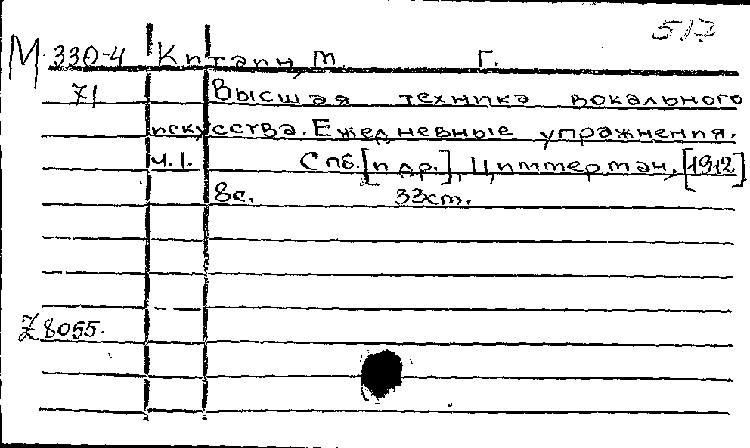 517
М 330-4 Китаин, М. Г.
71 Высшая техника вокального
искусства. Ежедневные упражнения.
ч. I. Спб. [и др.], Циммерман, [1912]
8с. 33см.
Z 8055.